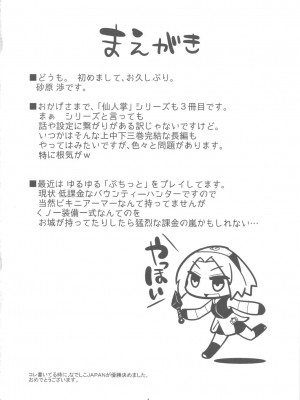 まえがき
■どうも。初めまして、お久しぶり。
砂原 渉です。
■おかげさまで、「仙人掌」シリーズも3冊目です。
まぁ シリーズと言っても
話や設定に繋がりがある訳じゃないですけど。
いつかはそんな上中下三巻完結な長編も
やってはみたいですが、色々と問題があります。
特に根気がｗ
■最近は ゆるゆる「ぷちっと」をプレイしてます。
現状 低課金なバウンティーハンターですので
当然ビキニアーマーなんて持ってませんが
くノ一装備一式なんてのを
お城が持ってたりしたら猛烈な課金の嵐かもしれない…
やっほい
コレ書いてる時に、なでしこJAPANが優勝決めました。
おめでとうございます。